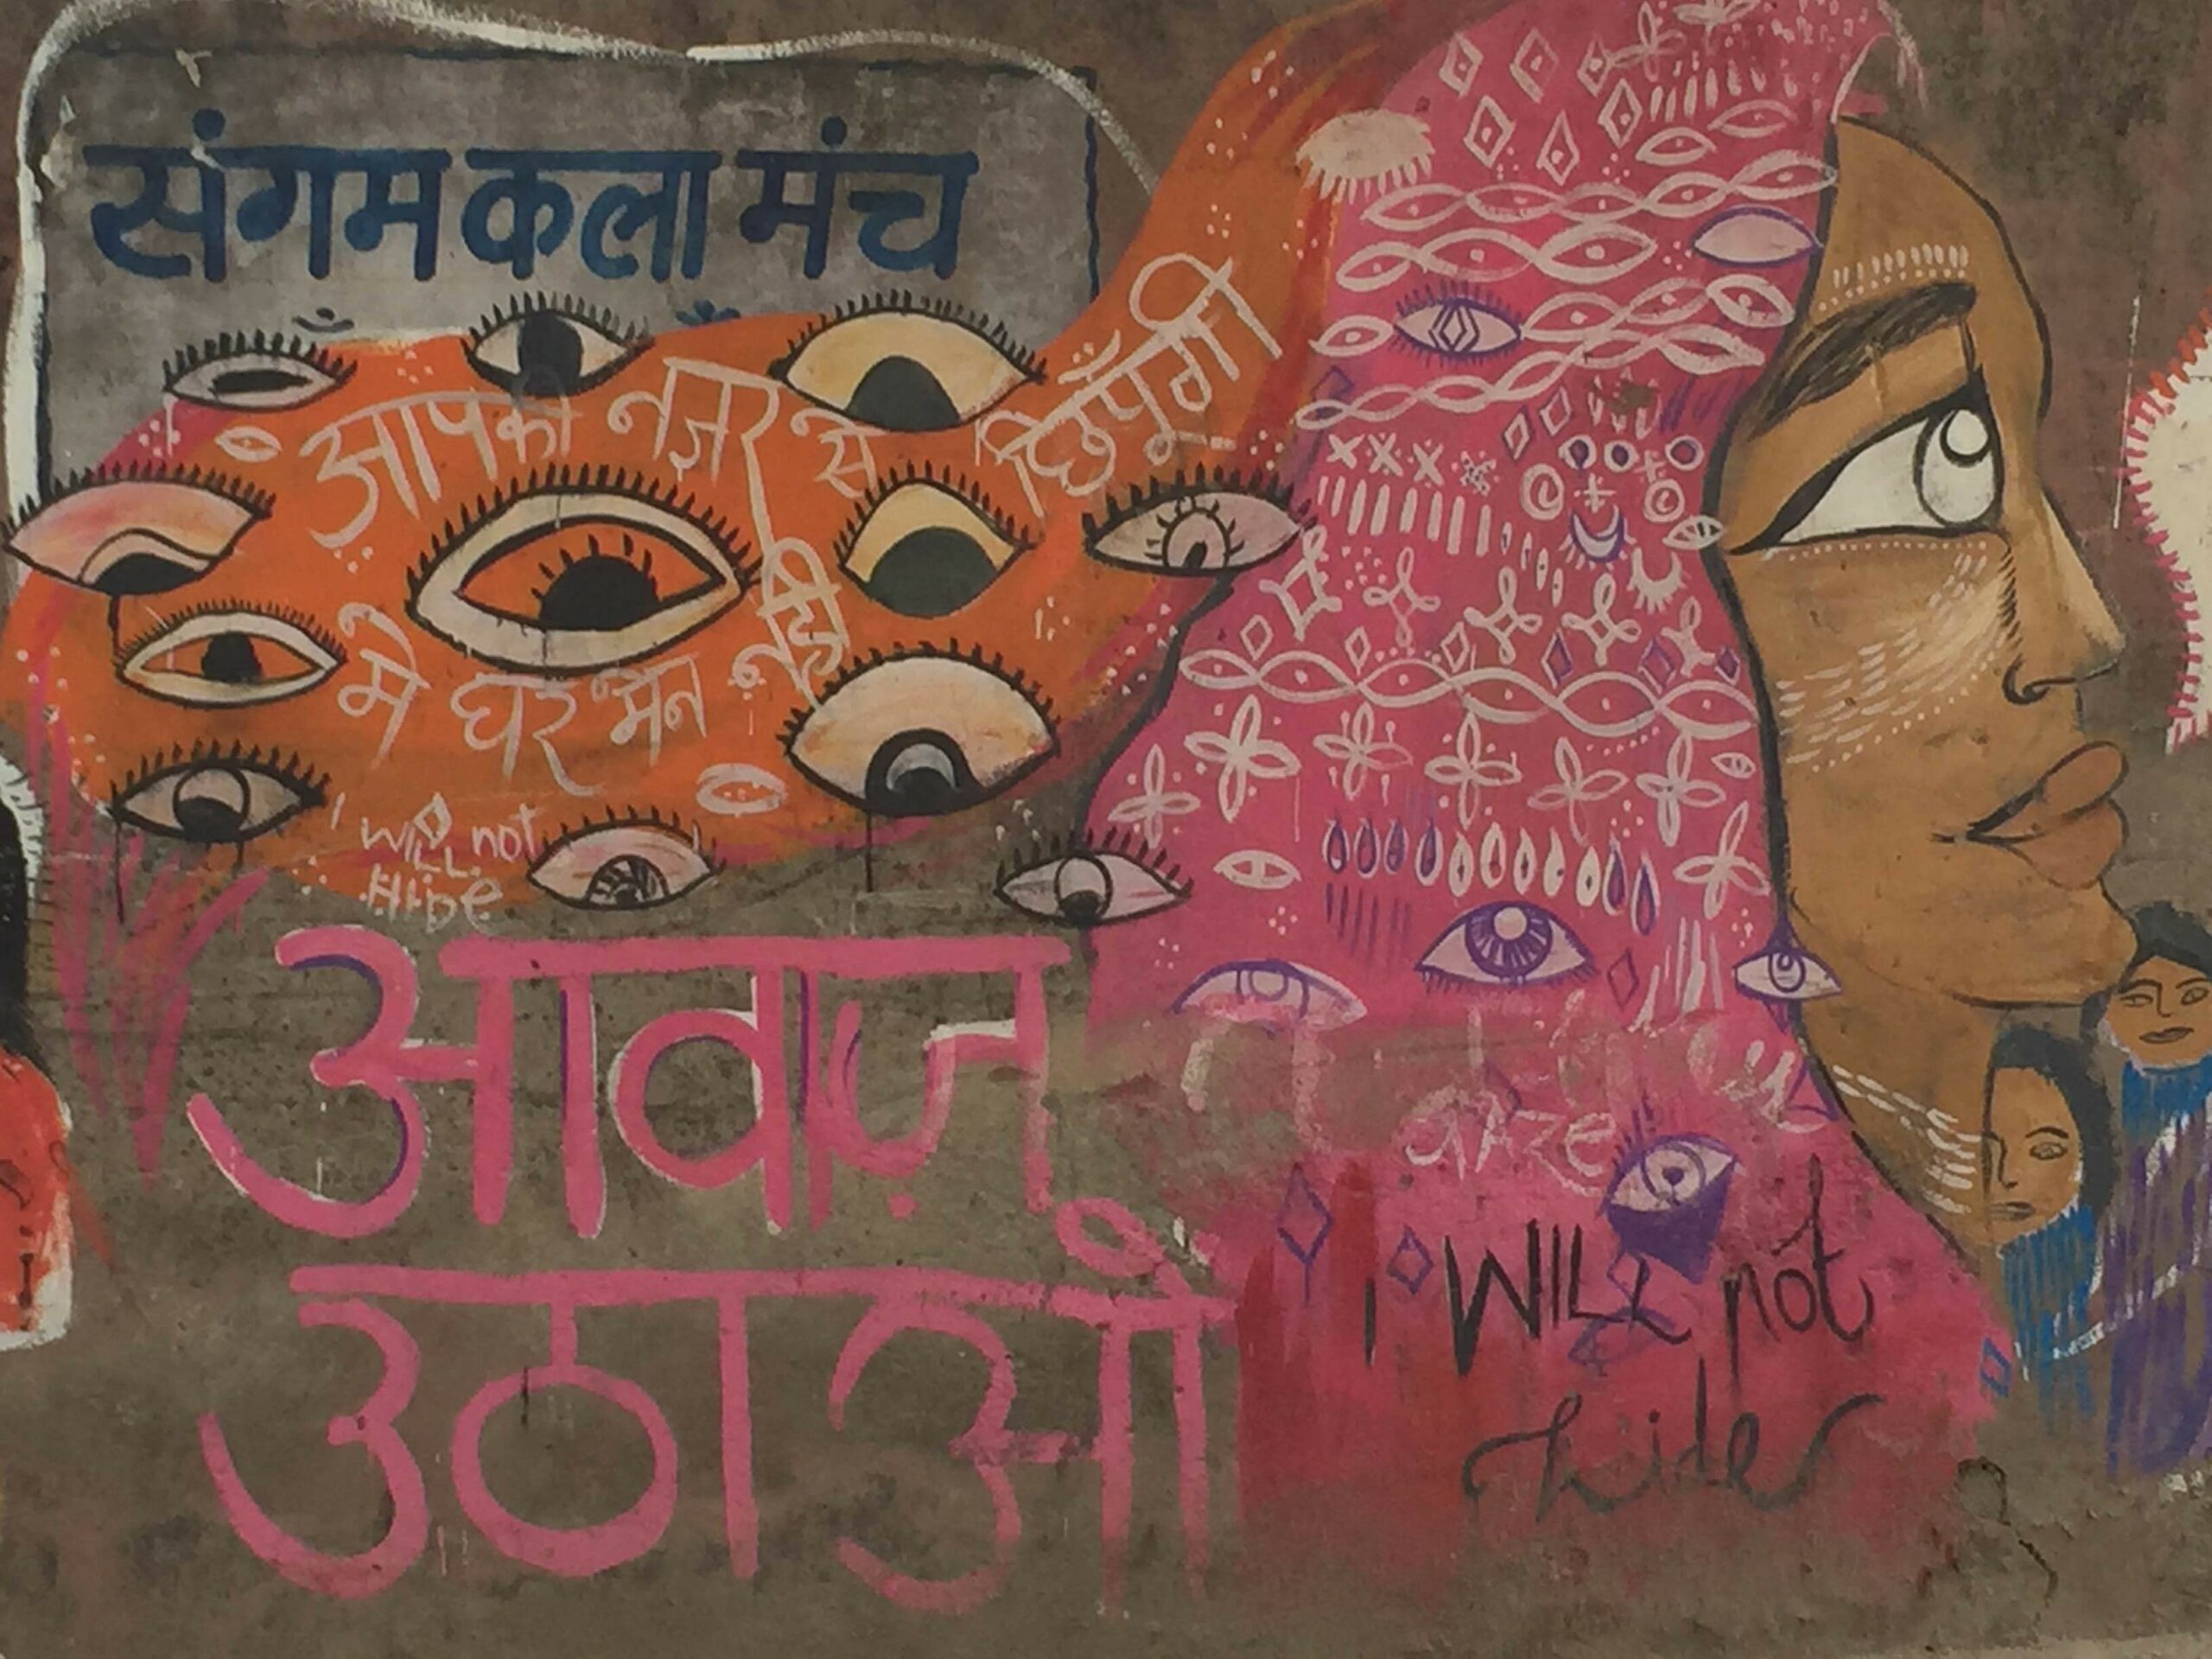 संगम कला मंच
आपकी नज़र से छिपूँगी
मे घर मेन नही
I WILL not
HiDe
आवाज़
उठाओ
GAZE
I WILL not
hide